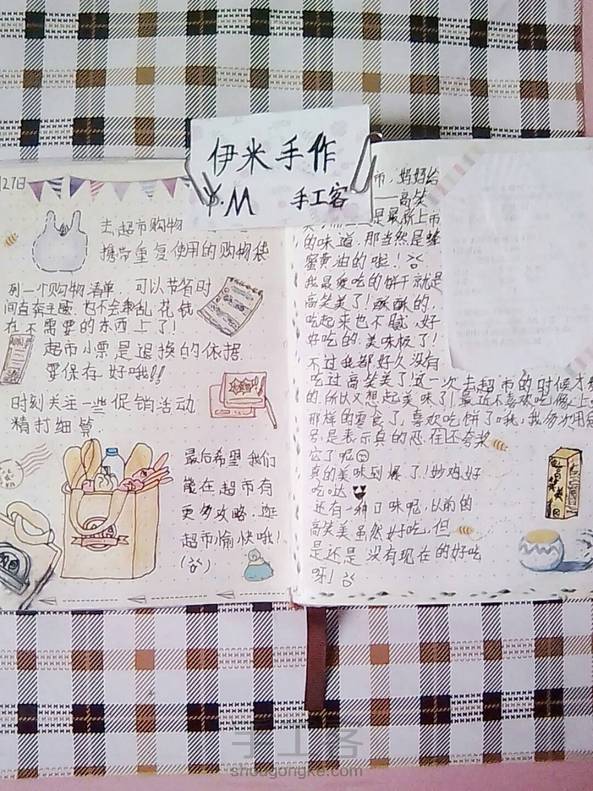 伊米手作
Y.M 手工客
27日
去超市购物
携带重复使用的购物袋
列一个购物清单,可以节省时
间直奔主题,也不会乱花钱
在不需要的东西上了!
超市小票是退换的依据
要保存好哦!!
时刻关注一些促销活动
精打细算
最后希望我们
能在超市有
更多攻略,逛
超市愉快哦!
市,妈妈给
高笑
是最新上市
的味道,那当然是蜂
蜜黄油的啦!
我最爱吃的饼干就是
高笑美了!酥酥的,
吃起来也不腻,好
好吃的,美味极了!
不过我都好久没有
吃过高笑美了,这一次去超市的时候才
的 所以又想起美味了!最近不喜欢吃像上
那样的零食了,喜欢吃饼了哦,我多次用
号是表示真的
它了啦
真的美味到爆了!妙鸡,好
吃哒
还有一种口味呢,以前的
高笑美虽然好吃,但
是还是没有现在的好吃
呀!
手工客
shougongke.com